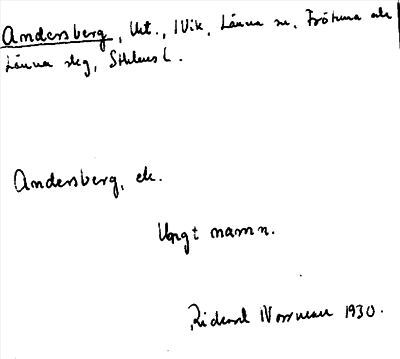 Andersberg, Ukt., 1 Vik, Länna sn, Frötuna och
Länna skg, Sthlms l.
Andersberg, ek.
Ungt namn.
Rickard 1930.